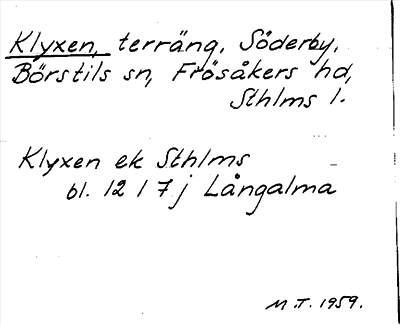 Klyxen, terräng, Söderby,
Börstils sn, Frösåkers hd,
Sthlms l.
Klyxen ek Sthlms
bl. 12 I 7 j Långalma
M.T. 1959.